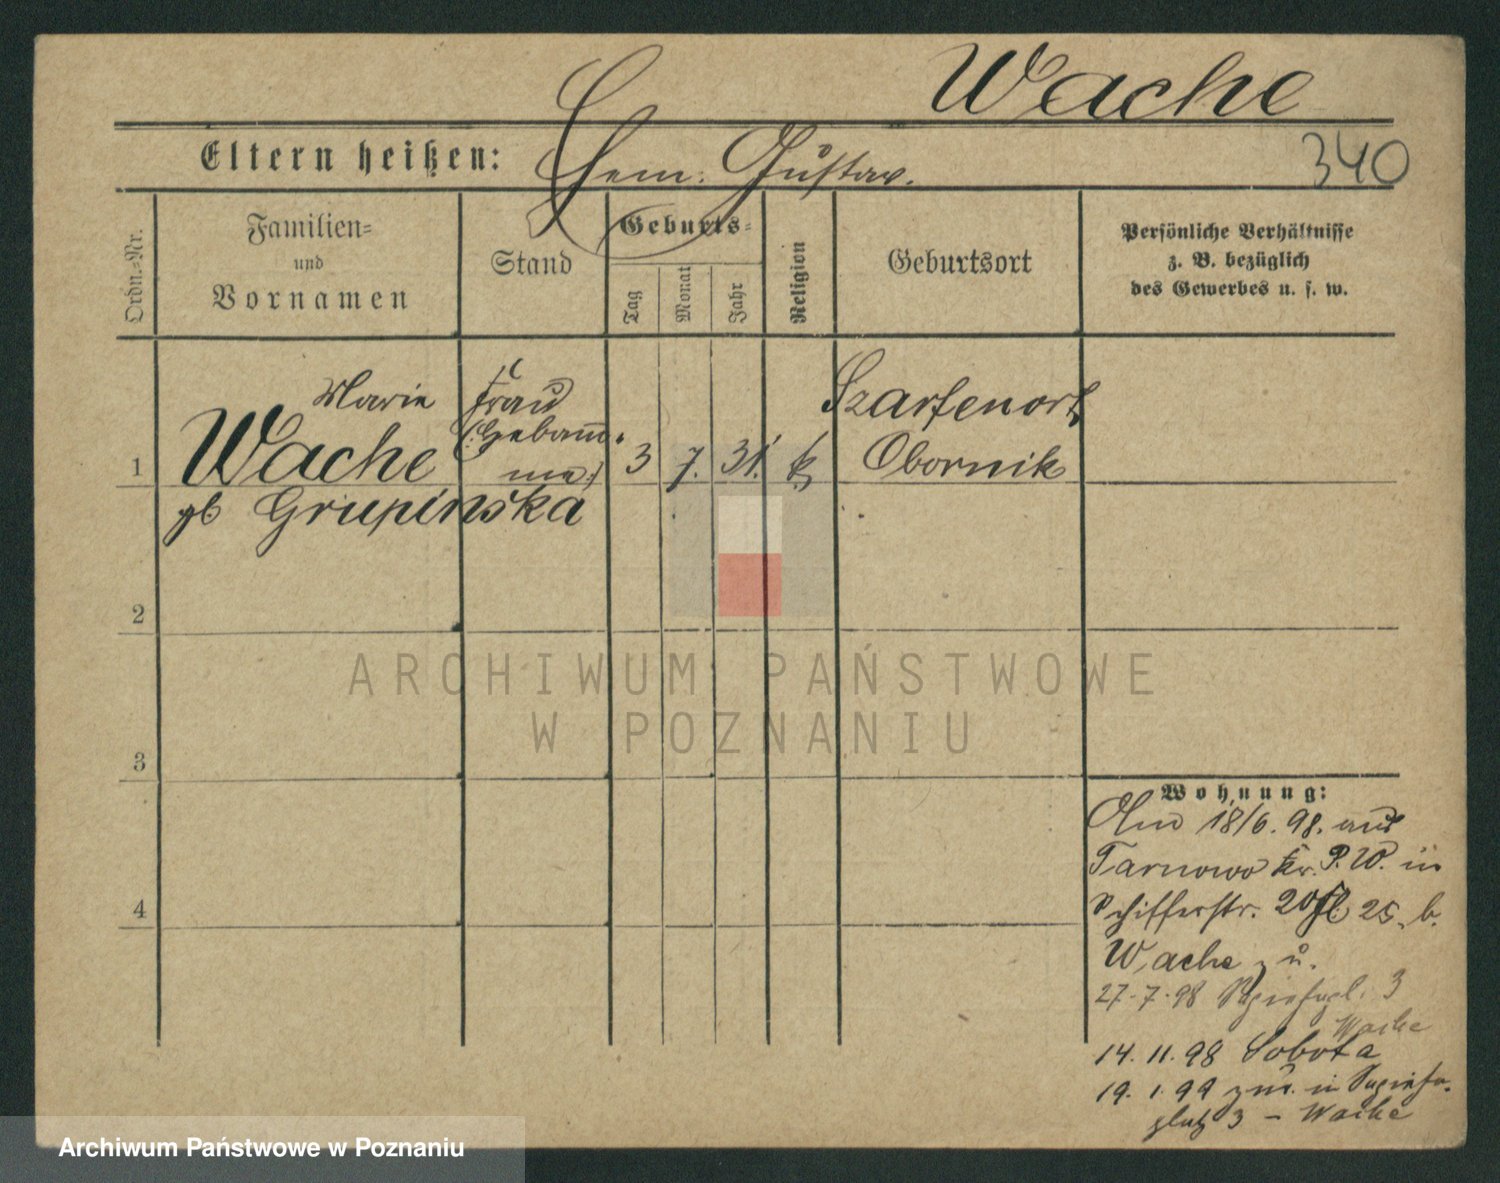 Wache
340
Eltern heißen: Ehem: Gustav.
Ordn.-Nr.
Familien-
und
Vornamen
Stand
Geburts-
Tag
Monat
Jahr
Religion
Geburtsort
Persönliche Verhältnisse
z. B. bezüglich
des Gewerbes u. s. w.
Marie Frau Szarfenort
(:Hebam-
1 Wache me:) 3 7. 31. k Obornik
gb Grupinska
2
3
4
Wohnung:
18/6. 98. aus
Tarnowo Kr. P. W. in
Schifferstr. 20 25, b.
Wache zu.
27-7-98 3
Wache
14. 11. 98 Sobota
19. 1. 99 in
platz 3 - Wache
ARCHIWUM PAŃSTWOWE
W POZNANIU
Archiwum Państwowe w Poznaniu